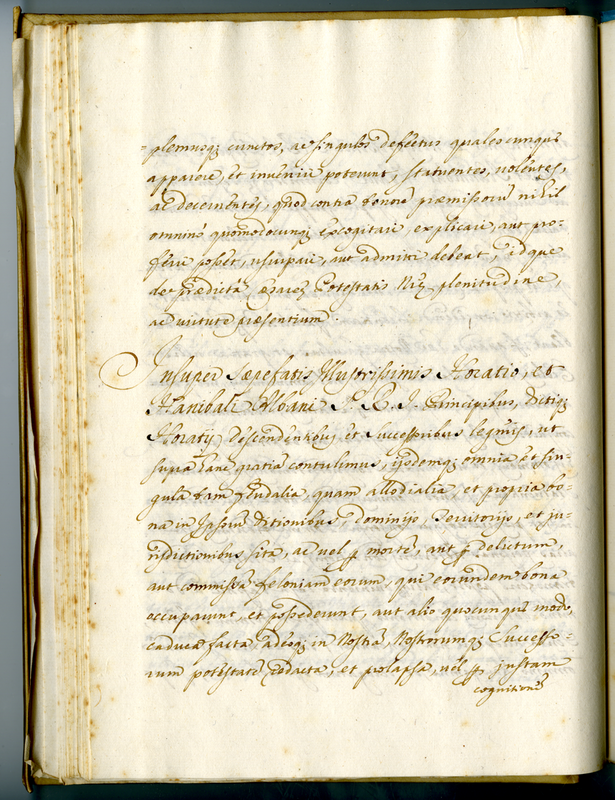 =plemusq; cunctos, ac singulos defectus qualescunque
apparere, et inveniri poterunt, statuentes, volentes,
ac decernentes, quod contra tenore præmissorū nihil
omnino quomodocunq; excogitari, explicari, aut pro=
ferri possit, usurpari, aut admitti debeat, idque
de prædictæ Cæsareæ Potestatis Nræ plenitudine,
ac virtute præsentium.
Insuper Sæpefatis Illustrissimis Horatio, et
Hanibali Albani S. R. I. Principibus, dictiq;
Horatij descendentibus et Successoribus legmis, ut
supra hanc gratiā contulimus, ijsdemq; omnia et sin=
gula tam feudalia, quam allodialia, et propria bo=
na in Ipsorū ditionibus, dominijs Territorijs, et ju=
risdictionibus sita, ac vel p mortē, aut p delictum,
aut commissā feloniam eorum, qui eorundem bona
occuparunt, et possederunt, aut alio quocunque modo,
caduca facta, adeoq; in Nostrā, Nostrorumq; Successo=
rum potestatē redacta, et prolapsa, vel p justam
cognitionē